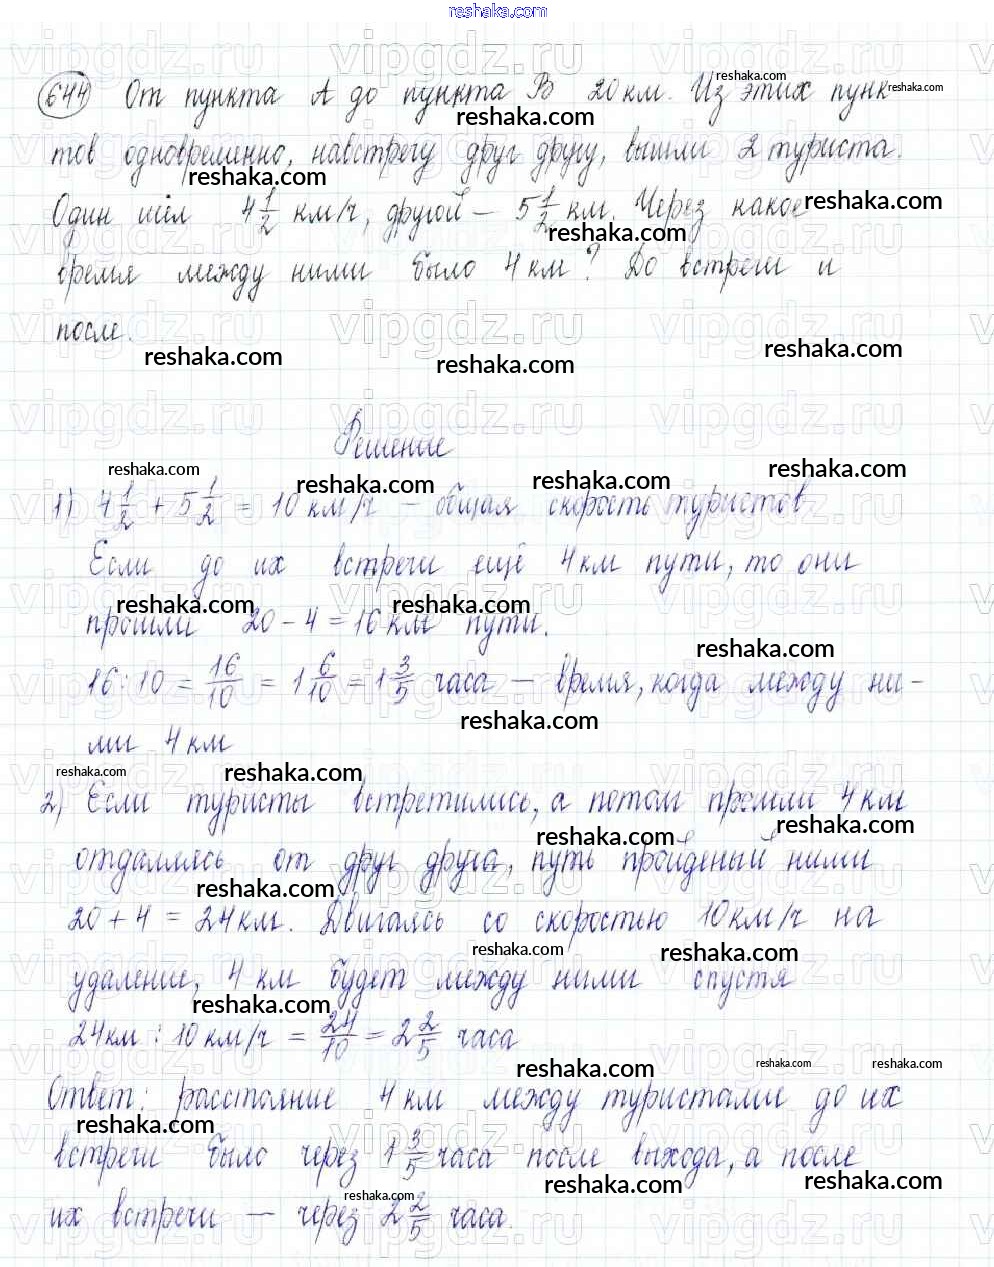 reshaka.com
644 От пункта А до пункта В 20 км. Из этих пунк
тов одновременно, навстречу друг другу, вышли 2 туриста.
Один шёл 4 1/2 км/ч, другой – 5 1/2 км. Через какое
время между ними было 4 км? До встречи и
после.
Решение
1) 4 1/2 + 5 1/2 = 10 км/ч – общая скорость туристов
Если до их встречи ещё 4 км пути, то они
прошли 20 – 4 = 16 км пути.
16 : 10 = 16/10 = 1 6/10 = 1 3/5 часа – время, когда между ни-
ми 4 км
2) Если туристы встретились, а потом прошли 4 км
отдаляясь от друг друга, путь пройденый ними
20 + 4 = 24 км. Двигаясь со скоростью 10 км/ч на
удаление, 4 км будет между ними спустя
24 км : 10 км/ч = 24/10 = 2 2/5 часа
Ответ: расстояние 4 км между туристами до их
встречи было через 1 3/5 часа после выхода, а после
их встречи – через 2 2/5 часа.